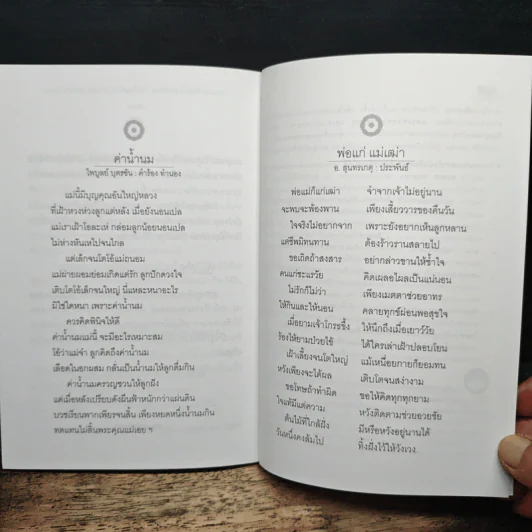 ค่าน้ำนม
ไพบูลย์ บุตรขัน : คำร้อง ทำนอง
แม่นี้มีบุญคุณอันใหญ่หลวง
ที่เฝ้าหวงห่วงลูกแต่หลัง เมื่อยังนอนเปล
แม่เราเฝ้าโอละเห่ กล่อมลูกน้อยนอนเปล
ไม่ห่างหันเหไปจนไกล
แต่เล็กจนโตโอ้แม่ถนอม
แม่ผ่ายผอมย่อมเกิดแต่รัก ลูกปักดวงใจ
เติบโตโอ้เล็กจนใหญ่ นี่แหละหนาอะไร
มิใช่ใดหนา เพราะค่าน้ำนม
ควรคิดพินิจให้ดี
ค่าน้ำนมแม่นี้ จะมีอะไรเหมาะสม
โอ้ว่าแม่จ๋า ลูกคิดถึงค่าน้ำนม
เลือดในอกผสม กลั่นเป็นน้ำนมให้ลูกดื่มกิน
ค่าน้ำนมควรชวนให้ลูกฝัง
แต่เมื่อหลังเปรียบดังผืนฟ้าหนักกว่าแผ่นดิน
บวชเรียนพากเพียรจนสิ้น เพียงหยดหนึ่งน้ำนมกิน
ทดแทนไม่สิ้นพระคุณแม่เอย ฯ
พ่อแก่ แม่เฒ่า
อ. สุนทรเกตุ : ประพันธ์
พ่อแม่ก็แก่เฒ่า จำจากเจ้าไม่อยู่นาน
จะพบจะพ้องพาน เพียงเสี้ยววารของคืนวัน
ใจจริงไม่อยากจาก เพราะยังอยากเห็นลูกหลาน
แต่ชีพมิทนทาน ต้องร้าวรานสลายไป
ขอเถิดถ้าสงสาร อย่ากล่าวขานให้ช้ำใจ
คนแก่ชะแรวัย คิดเผลอไผลเป็นแน่นอน
ไม่รักก็ไม่ว่า เพียงเมตตาช่วยอาทร
ให้กินและให้นอน คลายทุกข์ผ่อนพอสุขใจ
เมื่อยามเจ้าโกรธขึ้ง ให้นึกถึงเมื่อเยาว์วัย
ร้องไห้ยามป่วยไข้ ได้ใครเล่าเฝ้าปลอบโยน
เฝ้าเลี้ยงจนโตใหญ่ แม้เหนื่อยกายก็ยอมทน
หวังเพียงจะได้ผล เติบโตจนสง่างาม
ขอโทษถ้าทำผิด ขอให้คิดทุกทุกยาม
ใจแท้มีแต่ความ หวังติดตามช่วยอวยชัย
ต้นไม้ที่ใกล้ฝั่ง มีหรือหวังอยู่นานได้
วันหนึ่งคงล้มไป ทิ้งฝั่งไว้ให้วังเวง